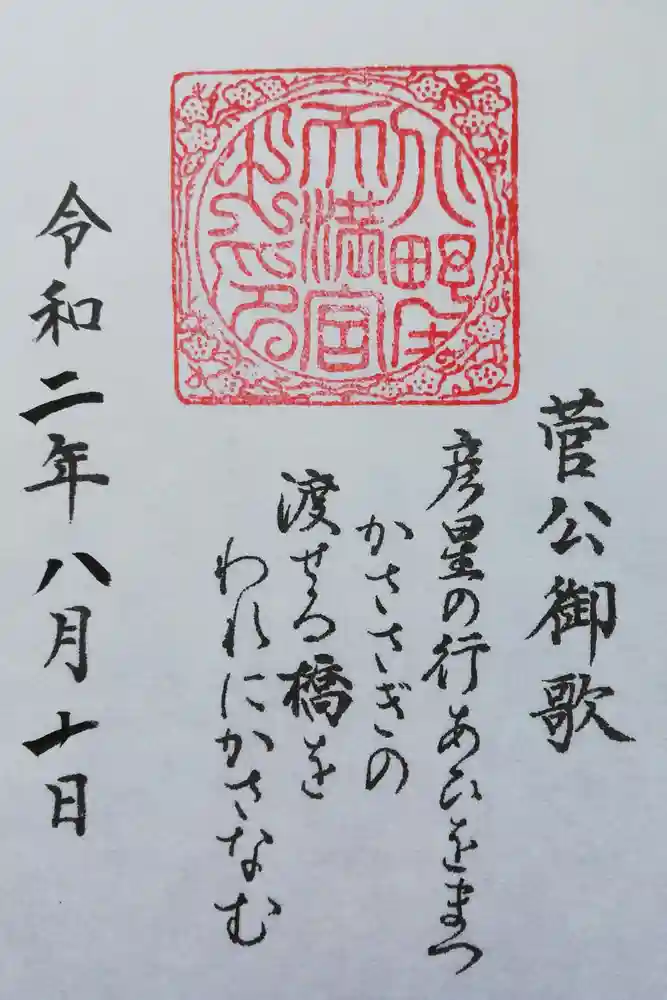 天満宮
之印
菅公御歌
彦星の行あひをまつ
かささぎの
渡せる橋を
われにかさなむ
令和二年八月十日